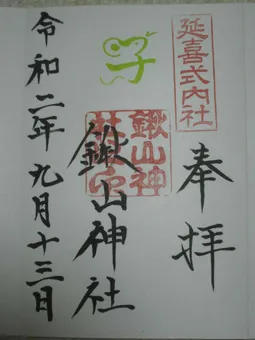 延喜式内社
奉拝
子
鍬山神社
鍬山神社印
令和二年九月十三日